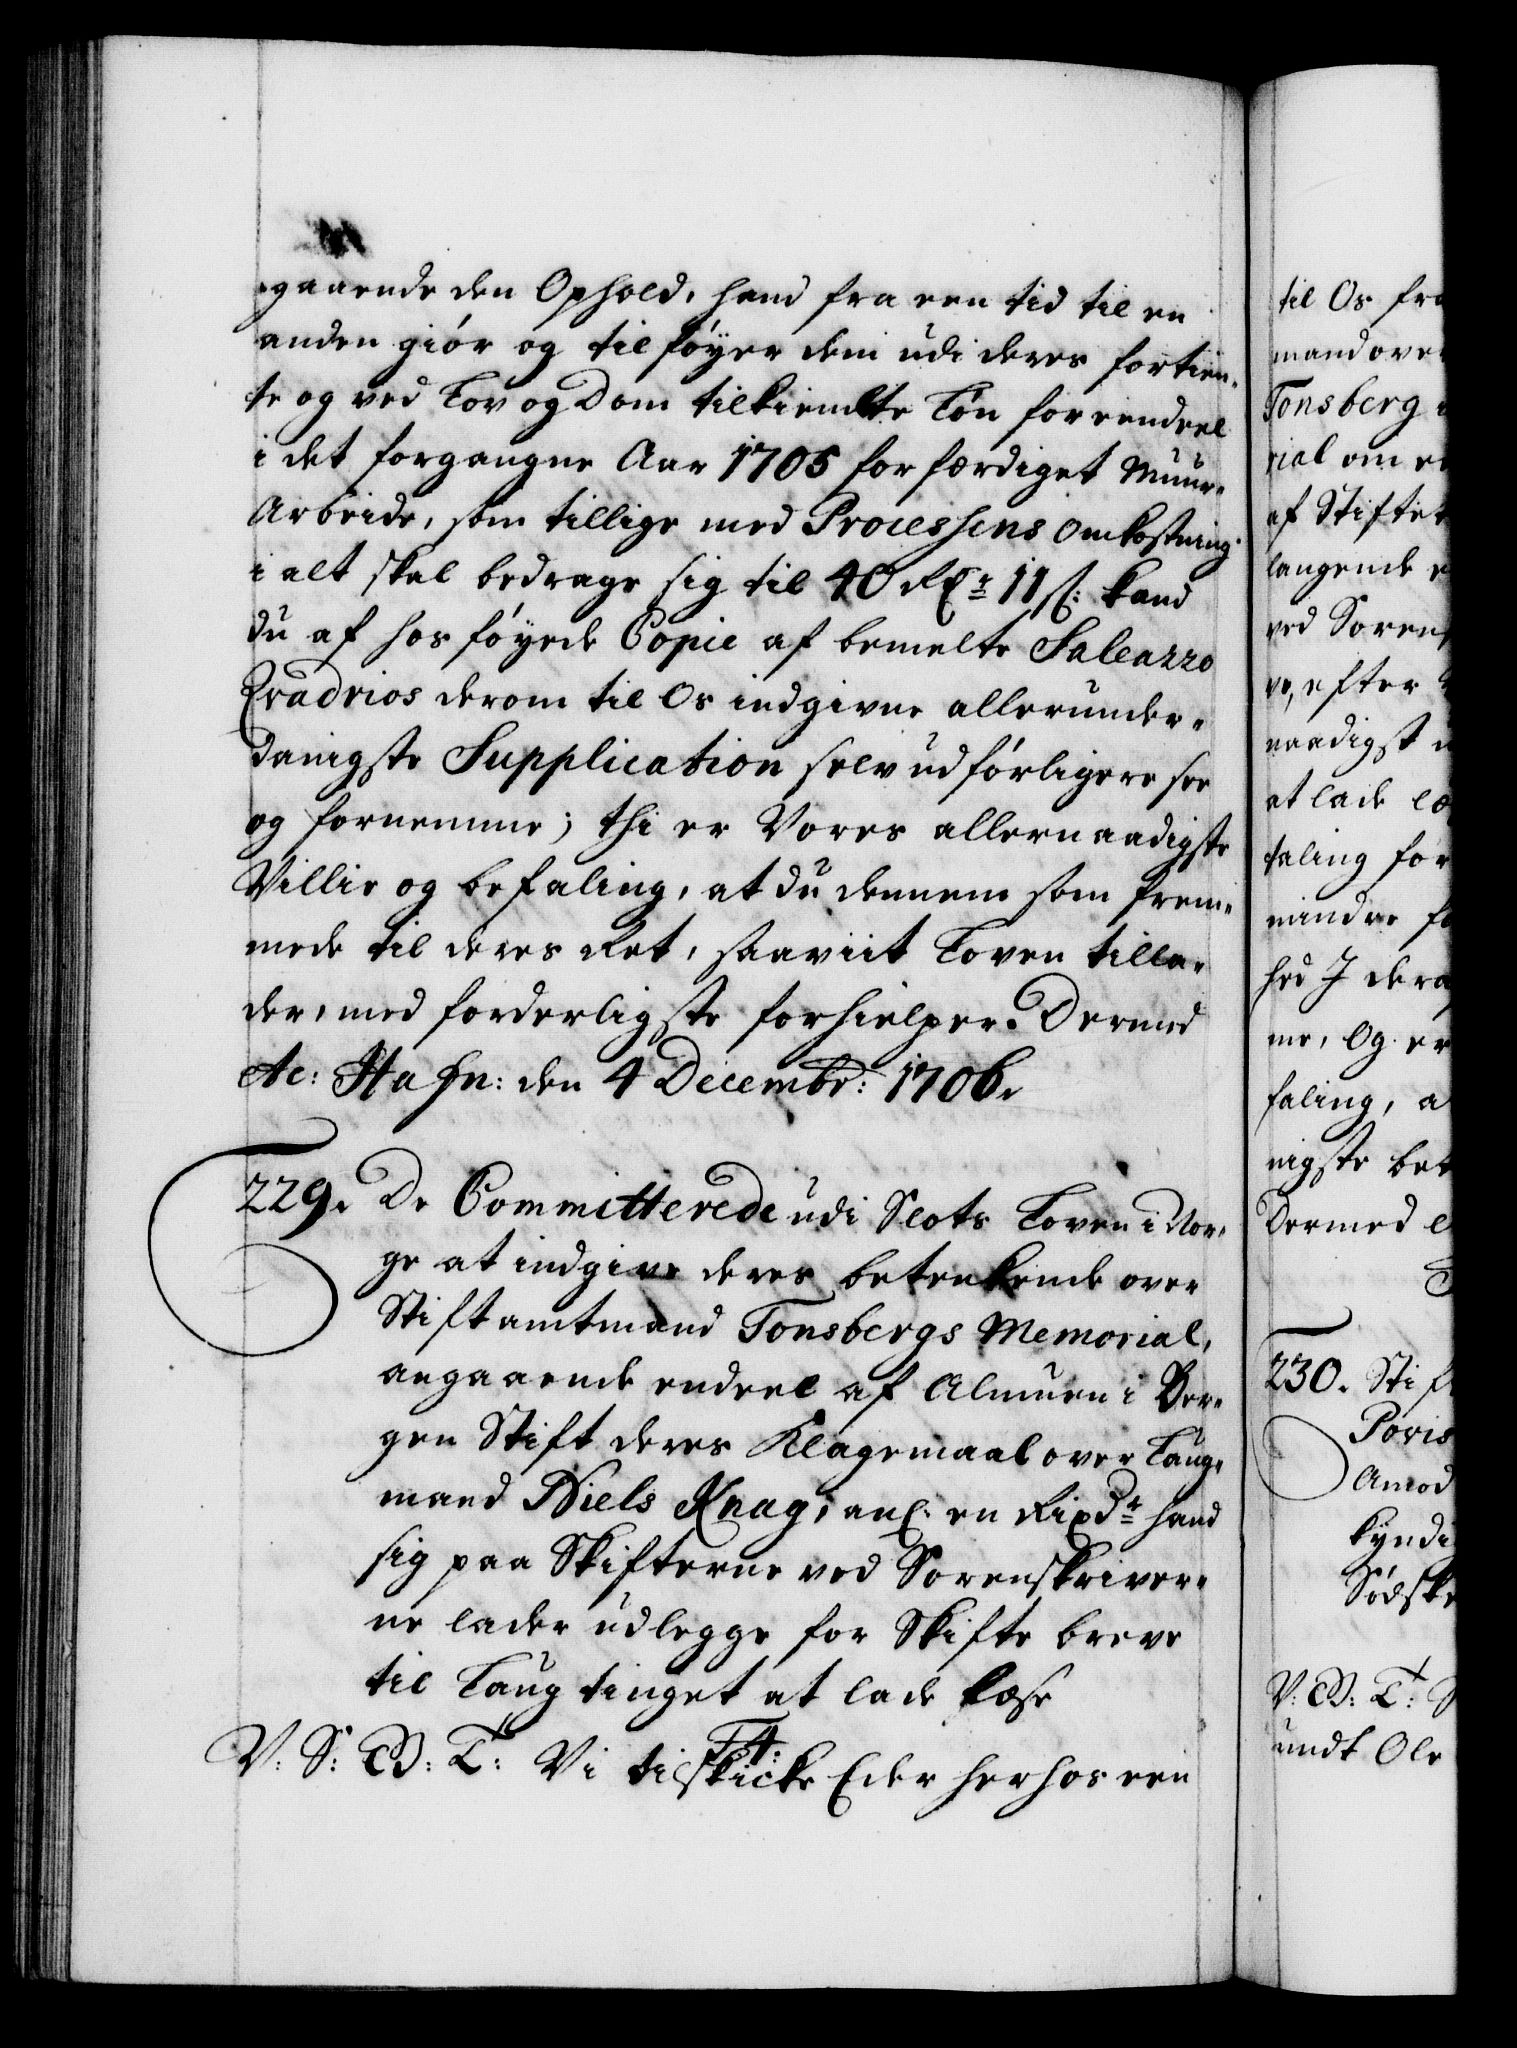 gaaende den Ophold, hand fra een tid til en
anden giör og tilföyer dem udi deres fortien-
te og ved Lov og Dom tilkiendte Lön for eendeel
i det forgangne Aar 1705 forfærdiget Muur-
Arbeide, som tillige med Processens Omkostning
i alt skal bedrage sig til 40 Rdr 11 s: kand
du af hosföyede Copie af bemelte Saleazzo
Qvadrios derom til Os indgivne allerunder-
danigste Supplication selv udförligere see
og fornemme; thi er Vores allernaadigste
Villie og befaling, at du dennem som frem-
mede til deres Ret, saaviit Loven tilla-
der, med forderligste forhielper. Dermed
etc: Hafn: den 4 Decembr: 1706.
229. De Committerede udi Slots Loven i Nor-
ge at indgive deres betenkende over
Stiftamtmand Tonsbergs Memorial,
angaaende endeel af Almuen i Ber-
gen Stift deres Klagemaal over Laug-
mand Niels Knag, anl. en Rixdr hand
sig paa Skifterne ved Sorenskriver-
ne lader udlegge for Skifte breve
til Laugtinget at lade læse
F4:
V: S: G: T: Vi tilskicke Eder herhos een
til Os fra
mand over
Tonsberg
rial om
af Stiftet
langende
ved Soren
ve, efter
naadigst
at lade læ
taling for
mindre
hed J der
me, Og er
faling, a
nigste bet
Dermed
230. Stif
Povis
Amod
kyndi
Södske
V: G: T:
undt Ole